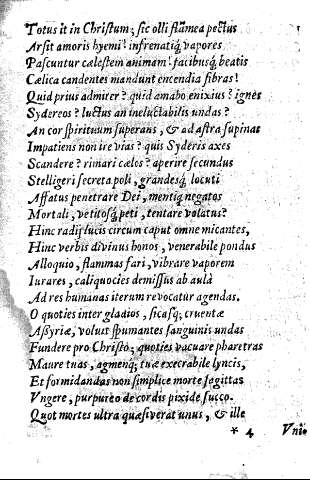 Totus it in Christum; sic olli flãmea pectus
Arsit amoris hyems! infrenatiq́ vapores
Pascuntur cælestem animam! facibusq́ beatis
Cælica candentes mandunt encendia fibras!
Quid prius admirer? quid amabo enixius? ignes
Sydereos? luctus an ineluctabilis undas?
An cor spirituum superans, & ad astra supinas
Impatiens non ire vias? quis Syderis axes
Scandere? rimari cælos? aperire secundus
Stelligeri secreta poli, grandesq́; locuti
Affatus penetrare Dei, mentiq́ negatos
Mortali, vetitosq́ peti, tentare volatus?
Hinc radij sucis circum caput omne micantes,
Hinc verbis divinus honos, venerabile pondus
Alloquio, flammas fari, vibrare vaporem
Iurares, caliquocies demissus ab aulâ
Ad res humanas iterum revocatur agendas.
O quoties inter gladios, sicasq́; cruentæ
Assyriæ, voluit spumantes sanguinis undas
Fundere pro Christo; quoties vacuare pharetras
Maure tuas, agmenq́; tuæ execrabile lyncis,
Et formidandas non simplice morte sagittas
Vngere, purpureo de cordis pixide succo.
Quot mortes ultra quæsiverat unus, & ille
* 4 Vni-